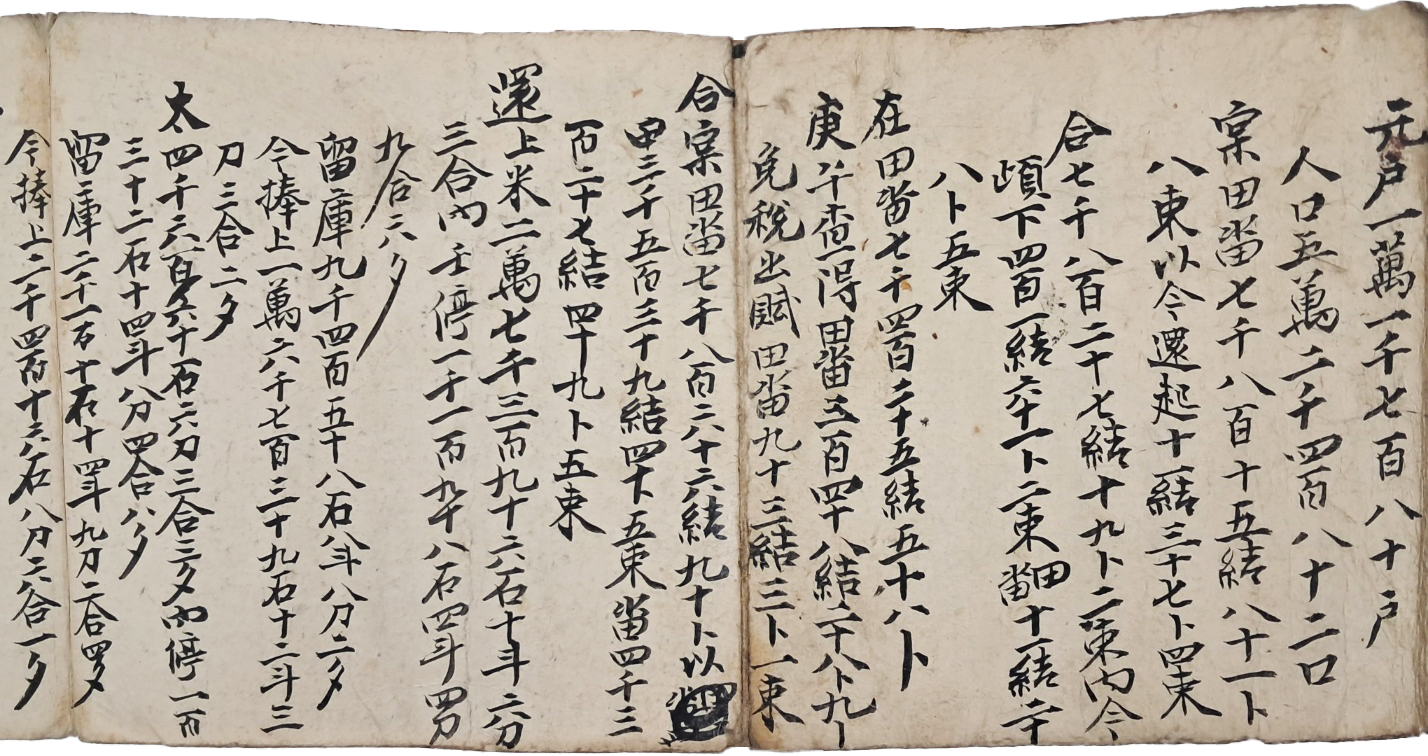 元戶一萬一千七百八十戶
人口五萬二千四百八十二口
実田畓七千八百十五結八十一卜
八束以今還起十一結三十七卜四束
合七千八百二十七結十九卜二束內今
頉下四百一結六十一卜二束田畓十二結二十
八卜五束
在田畓七千四百二十五結五十八卜
庚午査得田畓三百四十八結二十八卜九卜
免稅出賦田畓九十三結三卜一束
合実田畓七千八百六十六結九十卜以
田三千五百三十九結四十卜五束畓四千三
百二十七結四十九卜五束
還上米二萬七千三百九十六石十斗六分
三合內壬停一千一百九十八石四斗四分
九合六夕
留庫九千四百五十八石八斗八刀二夕
今捧上一萬六千七百三十九石十二斗三
刀三合二夕
太四千六百六十一石六刀三合三夕內停一百
三十二石十四斗八分四合八夕
留庫二千一百十石十四斗九刀二合四夕
今捧上二千四百十六石八刀六合一夕